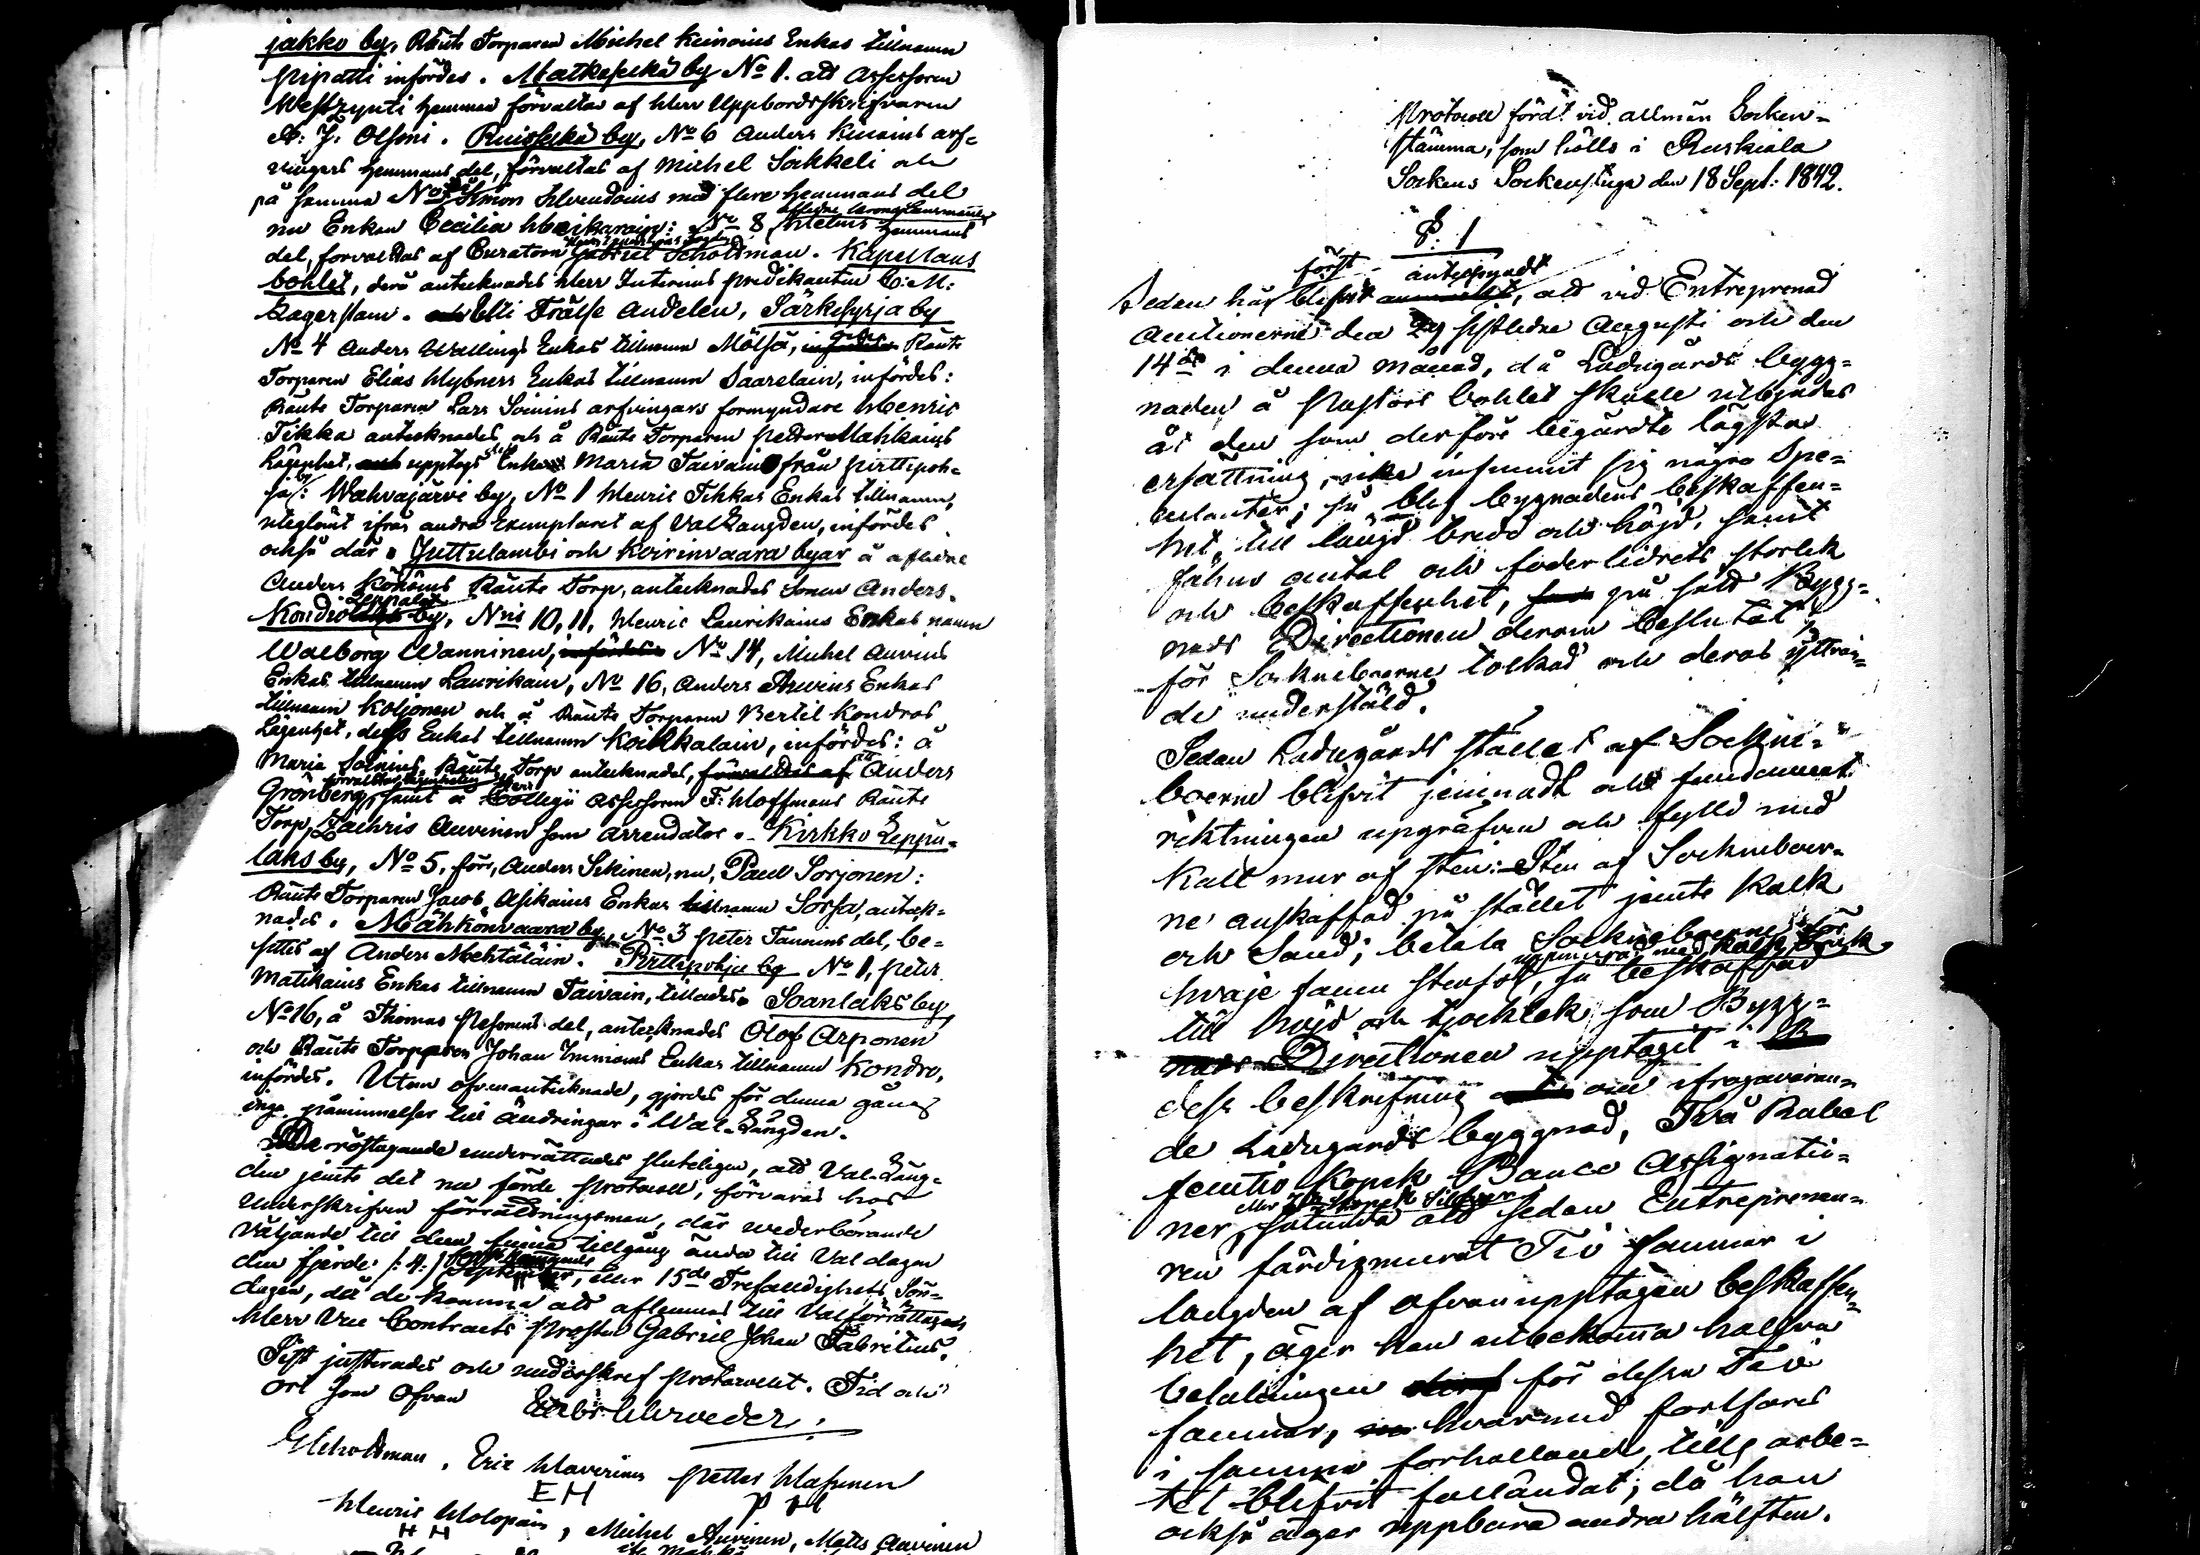 jakko by, Ränte Torparen Michel Keinoins Enkas tillnamn
Pipatti infördes. Matkaselkä by No 1. att Assessoren
Westzynti hemman förvaltas af Herr Uppbördsskrifvaren
A: J: Olsoni. Ruisselkä by, No 6 Anders Kinoins arf-
vingars hemmans del, förvaltas af Michel Sikkeli och
på samma No Simon Hvendoins med flere hemmans del
nu Enkan Cecilia Heikarain: No 8, hemmans
del, forvaltas af Curatorn Gabriel Schottman. Kapellans
bohlet, derå antecknades Herr Interims predikanten C: M:
Lagerstam. Elli Frälse Andelen, Särkesyrja by
No 4 Anders Wallings Enkas tillnamn Mölsä, Ränte
Torparen Elias Hybners Enkas tillnamn Saarelain, infördes:
Ränte Torparen Lars Soinins arfvingars formyndare Henric
Tikka antecknades, och å Ränte Torparen Petter Mahkains
Lägenhet, upptogs Enkan Maria Taivain från Pirttipoh-
ja by: Wahvajärvi by, No 1 Henric Tikkas Enkas tillnamn,
uteglömt ifrån andra Exemplaret af Vallängden, infördes
också där. Juttulambi och Koirinvaara byar å aflidne
Anders Ränte Torp, antecknades Sonen Anders.
by, Nris 10, 11, Henric Laurikains Enkas namn
Walborg Wanninen, infördes No 14, Michel Auvins
Enkas tillnamn Laurikain, No 16, Anders Auvins Enkas
tillnamn Koljonen och å Ränte Torparen Bertil Kondros
Lägenhet, dess Enkas tillnamn Koikkalain, infördes: å
Maria Soinins Ränte Torp antecknades, förvaltas af Anders
Grönberg, samt å Collegii Assessoren F: Hoffmans Ränte
Torp, Zachris Auvinen som arrendator. Kirkko Leppä-
laks by, No 5, förr, Anders Sikinen, nu, Paul Sorjonen:
Ränte Torparen Jacob Asikains Enkas tillnamn Sorsa, anteck-
nades. Mähkönvaara by, No 3 Peter Tannins del, be-
sittes af Anders Mehtäläin. Pirttipohja by No 1, Peter
Matikains Enkas tillnamn Taivain, tillades. Soanlaks by,
No 16, å Thomas Pesonens del, antecknades Olof Arponen
och Ränte Torparen Johan Immonens Enkas tillnamn Kondro,
infördes. Utom ofvanantecknade, gjordes för denna gång
inga påminnelser till ändringar i Wal-Längden.
De röstägande underrättades sluteligen, att Val-Läng-
den jemte det nu förde Protocoll, förvaras hos
Underskrifven förrättningsman, där wederbörande
Väljande till dem finna tillgång ända till Val dagen
den fjerde /:4:/ eller 15de Trefaldighets Sön-
dagen, då de komma att aflemnas till Valförrättaren
Herr Vice Contracts Prosten Gabriel Johan Fabritius.
Sist justerades och underskref Protocollet. Tid och
ort som ofvan
Schroeder.
GSchottman, Eric Haverinen Petter Hassinen
EH PH
Henric Holopain, Michel Auvinen, Matts Auvinen
HH
Protocoll fördt vid allmän Socken-
stämma, som hölls i Ruskiala
Sockens Sockenstuga den 18 Sept: 1842.
§: 1
först antegnadt
Sedan här blifvit, att vid Entreprenad
auctionerne den 29 sistledne Augusti och den
14de i denna månad, då Ladugårds bygg-
naden å Pastors bohlet skulle utbjudas
åt den som derföre begärdte lägsta
ersättning, icke infunnit sig några Spe-
culanter; så blef byggnadens beskaffen-
het, till längd bredd och höjd, samt
fähus antal och foderlidrets storlek
och beskaffenhet, på sätt Bygg-
nads Directionen derom beslutat,
för Sockneboerne tolkad och deras yttran-
de underställd.
Sedan Ladugårds stället af Sockne-
boerne blifvit jemnadt och fundaments
riktningen uppgräfven och fylld med
Kall mur af sten: Sten af Sockneboer-
ne anskaffad på stället jemte Kalk
och Sand; betala Sockneboerne för
uppmurad med Kalk bruk
hvarje famn stenfot, så beskaffad
till höjd och tjocklek som Bygg-
nads Directionen upptagit i
dess beskrifning om ifrågavaran-
de Ladugårds byggnad, Två Rubel
femtio Kopek Banco Assignatio-
ner, sålunda att sedan Entreprenen-
ren färdigmurat Tio famnar i
längden af ofvanupptagen beskaffen-
het, äger han utbekomma halfva
betalningen för dessa Tio
famnar, hvarmed fortfares
i samma förhållande, tills arbe-
tet blifvit fulländat; då han
också äger uppbära andra hälften.